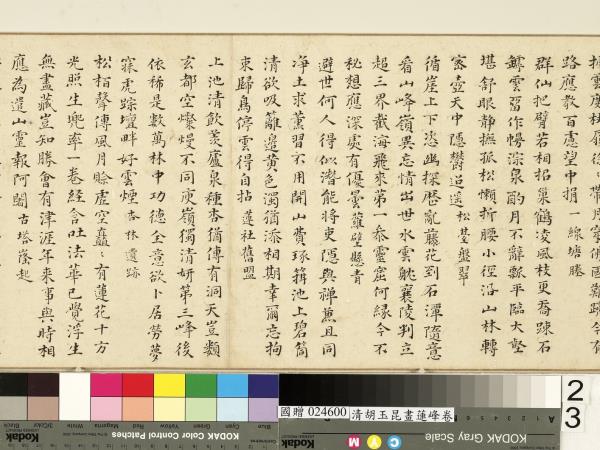 路應教百慮望中捐 一線塘勝
群仙把臂若相招巢鶴凌風枝更喬踈石
罅雲留作幔淙泉酌月不辭瓢平臨大壑
堪舒眼靜撫孤松懶折腰小徑沿山林轉
密壺天中隱鬱岧 松基盤翠
循崖上下恣幽探歷亂藤花到石潭隨意
看山峰嶺異忘情出世水雲躭襄陵判立
超三界截海飛來第一叅靈窟何緣今不
秘想應深處有優曇 蘿壁懸青
避世何人得似潛能將吏隱與禪兼且同
淨土求薰習不用開山費琢鎸池上碧筩
清欲吸籬邊黃色濁猶添相期幸爾忘拘
束歸鳥停雲得自拈 蓮社舊盟
上池清飲羨廬泉種杏猶傳有洞天豈類
玄都空爛熳不同庾嶺獨清妍第三峰後
依稀是數萬林中功德全意欲卜居勞夢
寐虎踪壇畔好雲煙 杏林遺跡
松栢聲傳風月賒虛空矗〻有蓮花十方
光照生兜率一卷經含吐法華已覺浮生
無盡藏豈知勝會有津涯年來事與時相
應為選山靈報阿閦 古塔
國贈 024600 清胡玉昆畫蓮峰卷
23
Black
3/Color
White
Magenta
Red
Yellow
Green
Cyan
Blue
KODAK Color Control Patches
Kodak
KODAK Gray Scale
C Y M
A
Kodak